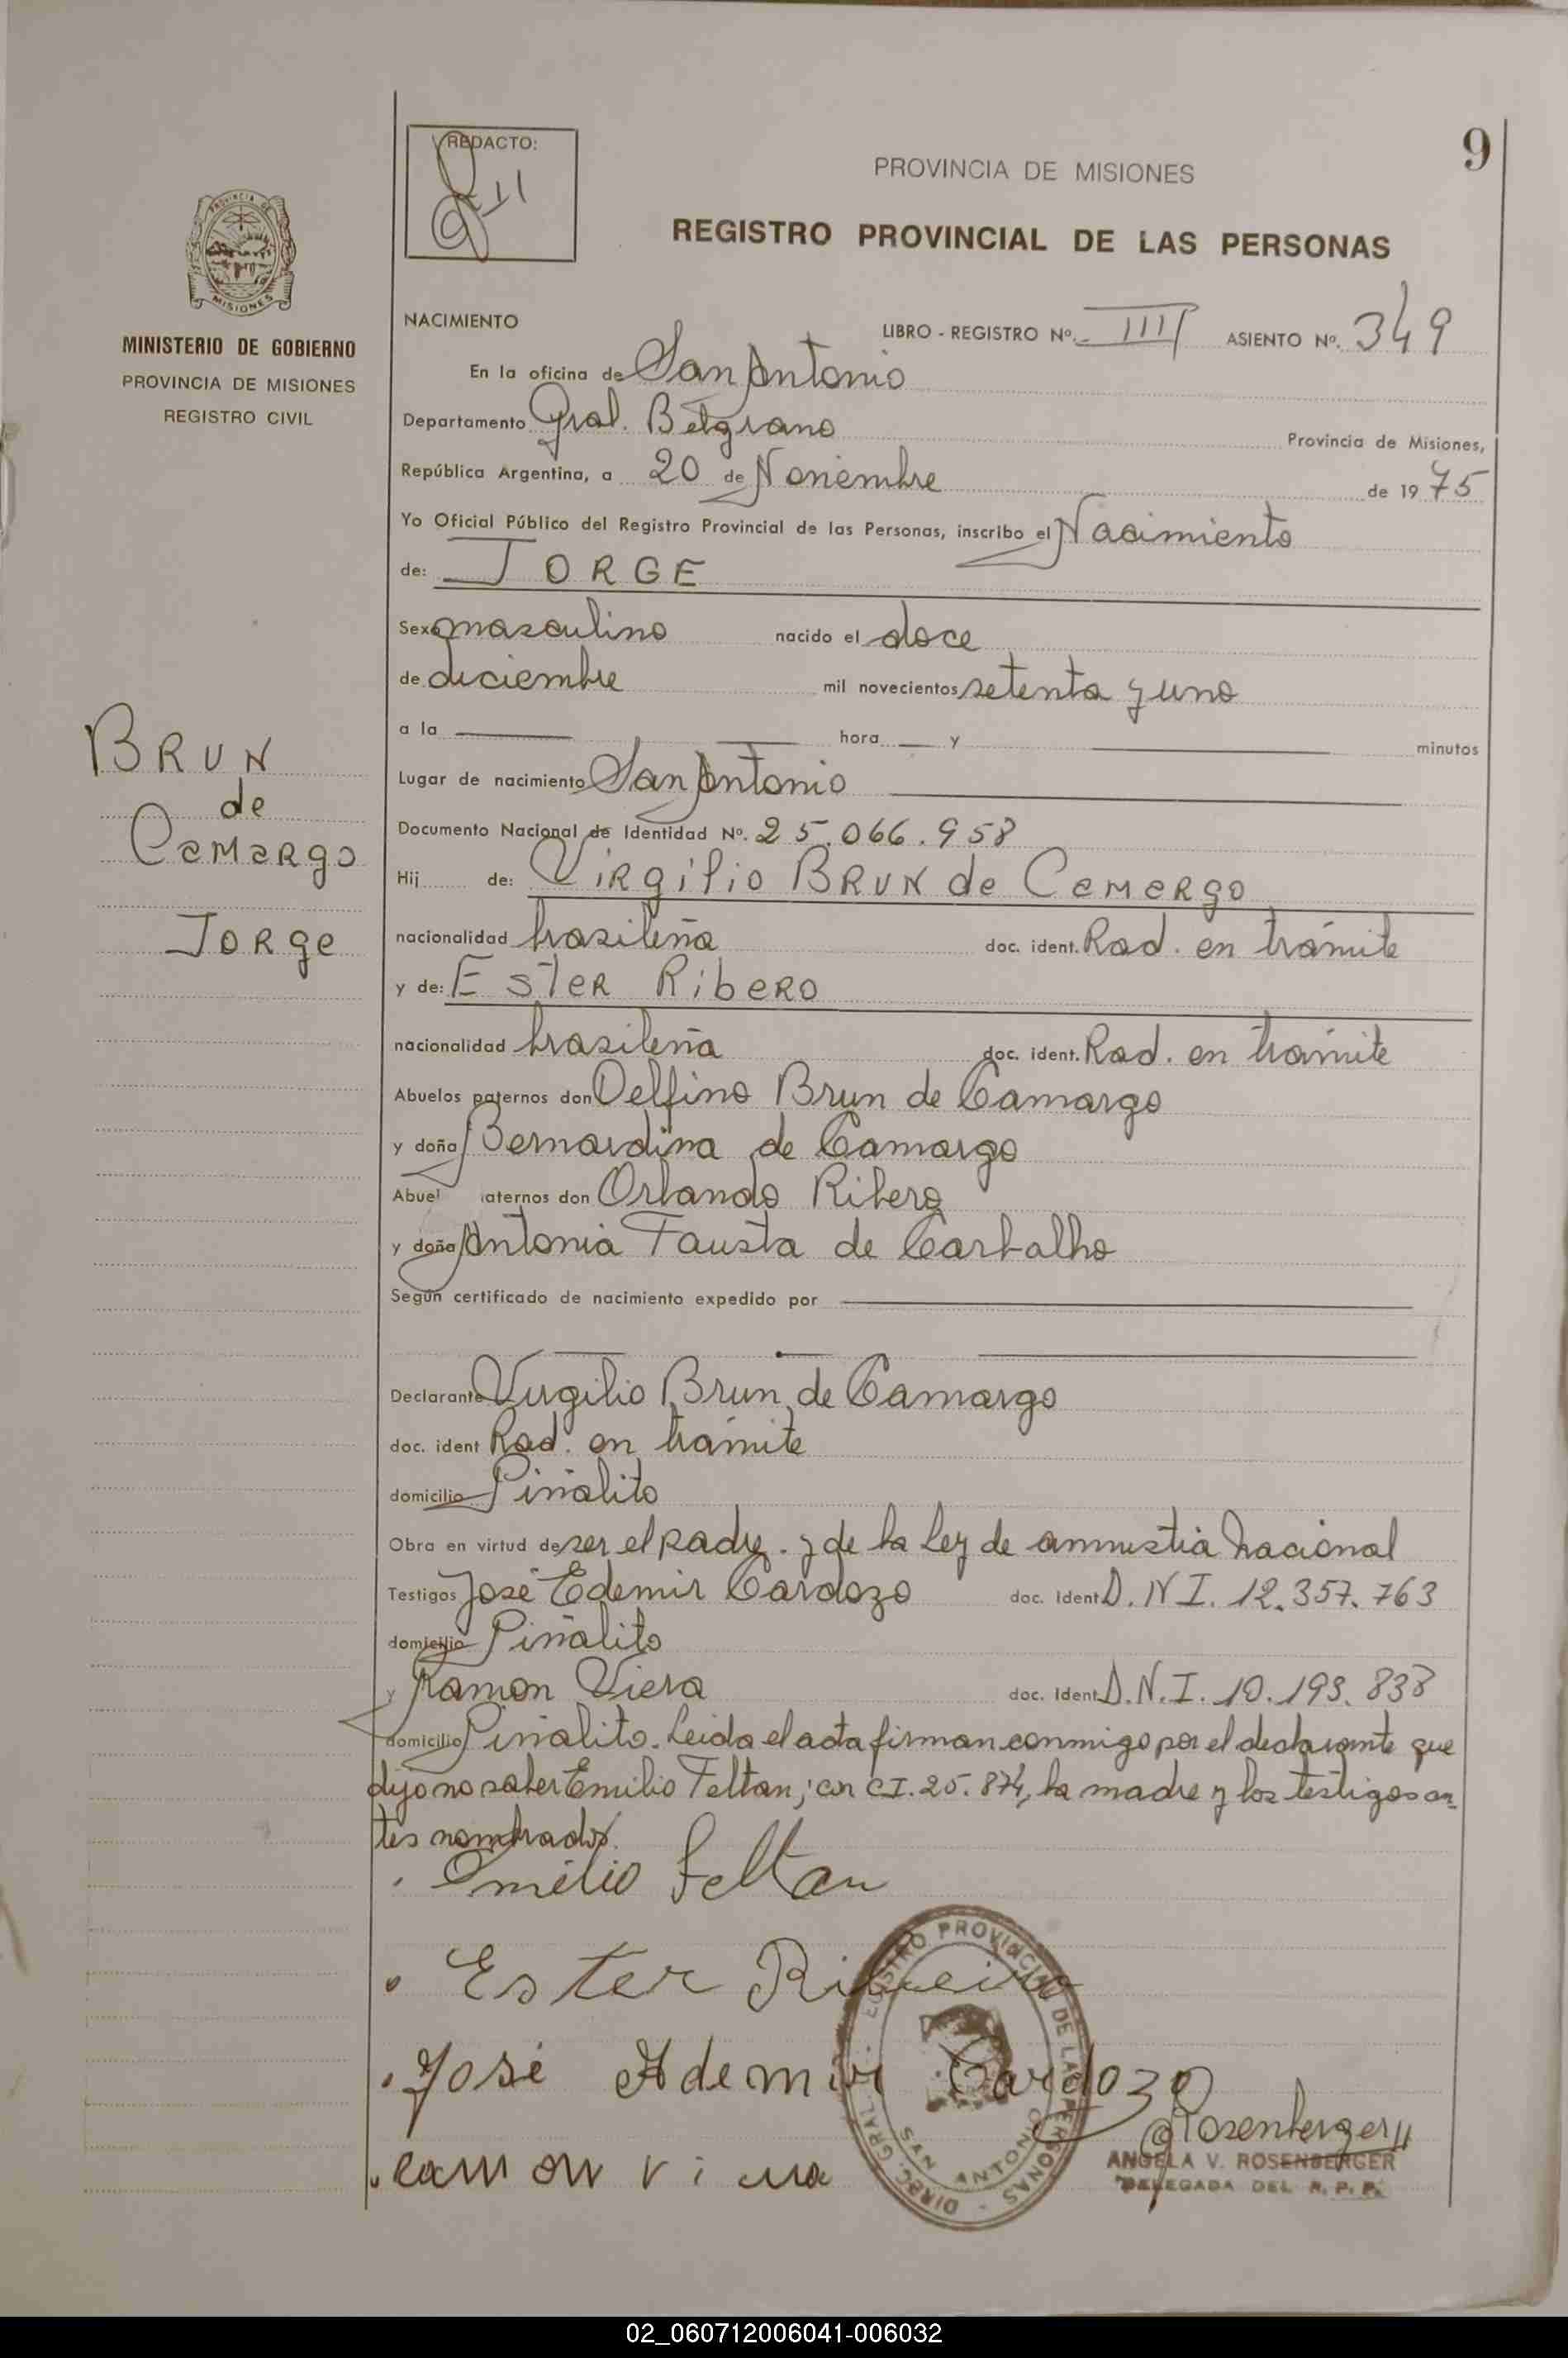 9
REDACTO:
PROVINCIA DE MISIONES
REGISTRO PROVINCIAL DE LAS PERSONAS
PROVINCIA DE
MISIONES
MINISTERIO DE GOBIERNO
PROVINCIA DE MISIONES
REGISTRO CIVIL
NACIMIENTO
LIBRO - REGISTRO Nº. III ASIENTO Nº. 349
En la oficina de San Antonio
Departamento Gral. Belgrano Provincia de Misiones,
República Argentina, a 20 de Noviembre de 1975
Yo Oficial Público del Registro Provincial de las Personas, inscribo el Nacimiento
de: JORGE
Sexo masculino nacido el doce
de diciembre mil novecientos setenta y uno
a la hora y minutos
BRUN
de
Camargo
Jorge
Lugar de nacimiento San Antonio
Documento Nacional de Identidad Nº. 25.066.958
Hij de: Virgilio BRUN de Camargo
nacionalidad brasileña doc. ident. Rad. en trámite
y de: Ester Ribero
nacionalidad brasileña doc. ident. Rad. en trámite
Abuelos paternos don Delfino Brun de Camargo
y doña Bernardina de Camargo
Abuel aternos don Orlando Ribero
y doña Antonia Fausta de Carbalho
Según certificado de nacimiento expedido por
Declarante Virgilio Brun de Camargo
doc. ident Rad. en trámite
domicilio Piñalito
Obra en virtud de ser el padre. y de la Ley de amnistia Nacional
Testigos José Edemir Cardozo doc. Ident. D.N.I. 12.357.763
domicilio Piñalito
y Ramon Viera doc. Ident. D.N.I. 10.193.838
domicilio Piñalito. Leida el acta firman conmigo por el declarante que
dijo no saber Emilio Feltan; con C.I. 25.874, la madre y los testigos an-
tes nombrados.
Emilio Feltan
Ester Ribeiro
José Ademir Cardozo
Ramon Viera
Rosenberger
ANGELA V. ROSENBERGER
DELEGADA DEL R. P. P.
DIREC. GRAL. REGISTRO PROVINCIAL DE LAS PERSONAS
SAN ANTONIO
02_060712006041-006032